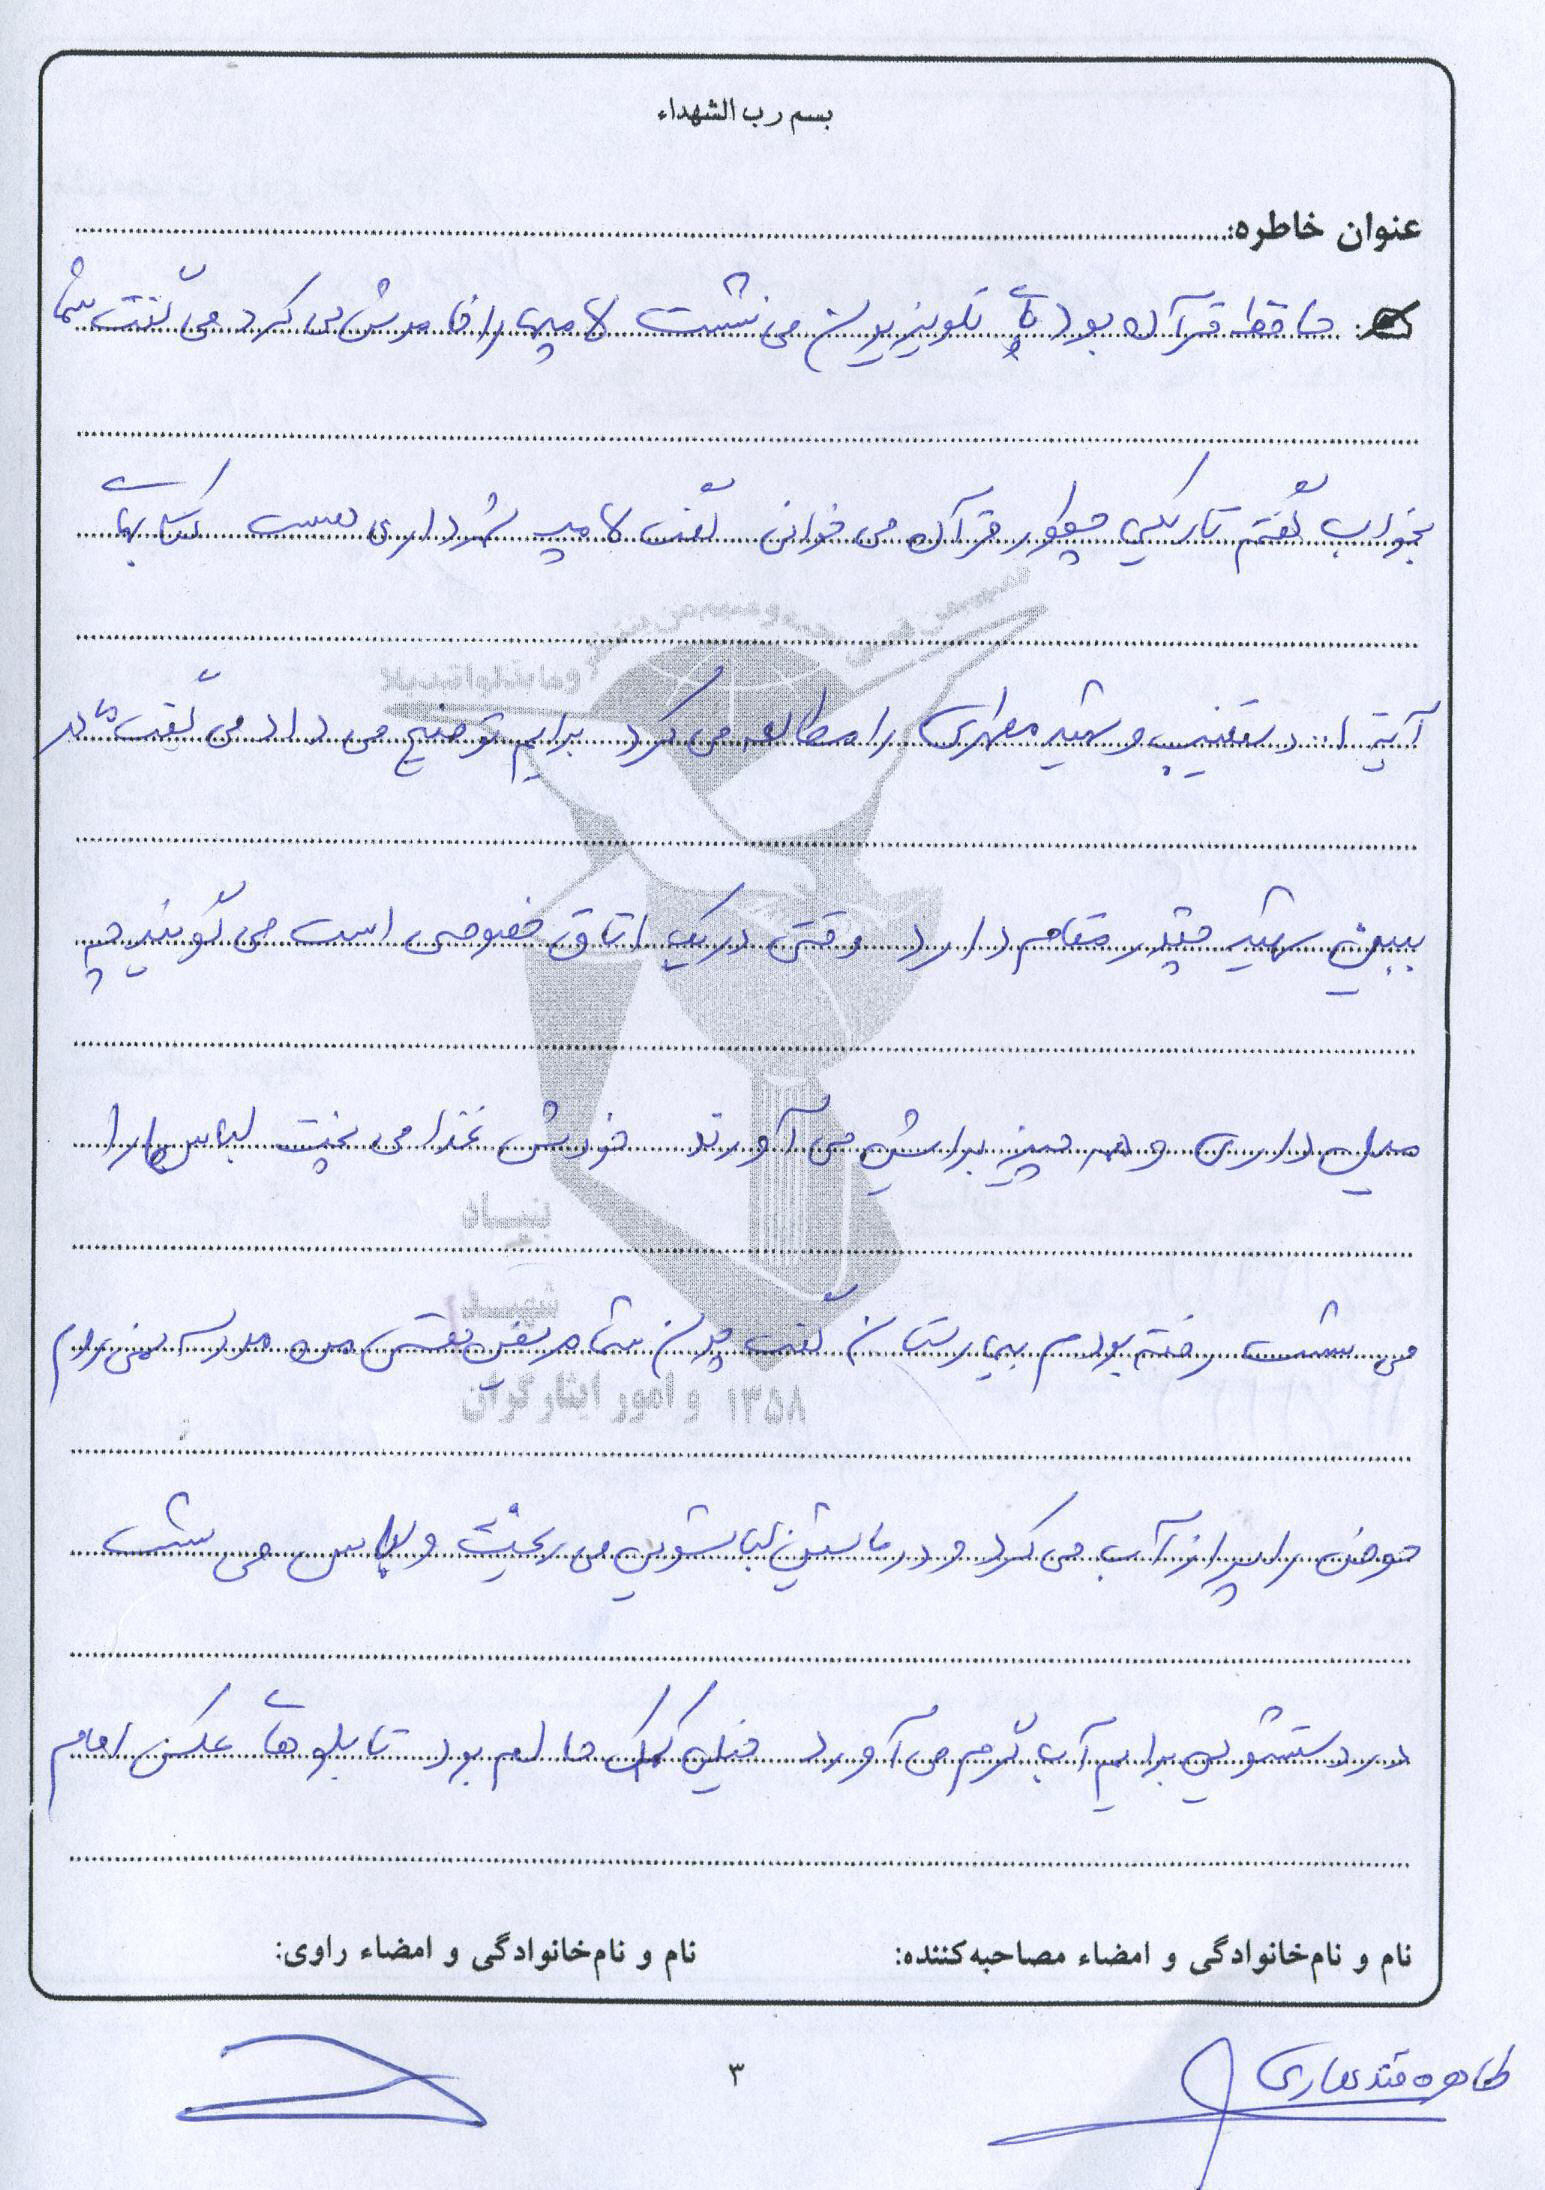 بسم رب الشهداء
عنوان خاطره:
حافظ قرآن بود پای تلویزیون می نشست لامپ را خاموش می کرد می گفت شما
بخواب گفتم تاریکی چطور قرآن می خوانی گفت لامپ شهرداری هست کتابهای
آیت ا... دستغیب و شهید مطهری را مطالعه می کرد برایم توضیح می داد می گفت مادر
ببین شهید چقدر مقام دارد وقتی در یک اتاق خصوصی است می گویند چه
میل داری و هر چیز برایش می آورند خودش غذا می پخت لباس ها را
می شست رفته بودم بیمارستان گفت چون شما مریض من مدرسه نمی روم
حوض را پر از آب می کرد و در ماشین لباسشویی می ریخت و لباس می شست
در دستشویی برایم آب گرم می آورد خیلی کمک حالم بود تابلوهای عکس امام
نام و نام‌خانوادگی و امضاء مصاحبه‌کننده:
نام و نام‌خانوادگی و امضاء راوی:
طاهره قندهاری
۳
بنیاد
شهید
و امور ایثارگران
۱۳۵۸